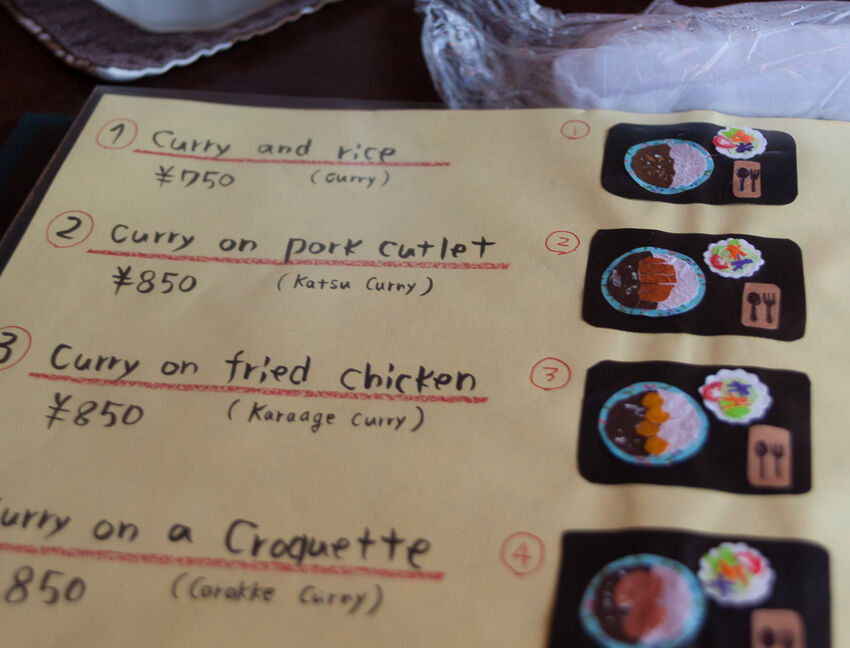 1 Curry and rice 1
¥750 (Curry)
2 Curry on pork cutlet 2
¥850 (Katsu Curry)
3 Curry on fried chicken 3
¥850 (Karaage Curry)
urry on a Croquette 4
850 (Corokke Curry)